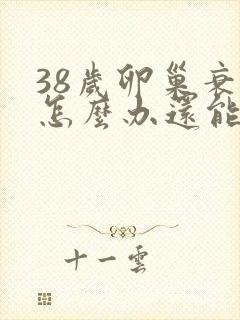 38歲卵巢衰
怎麼办還能
十一雲